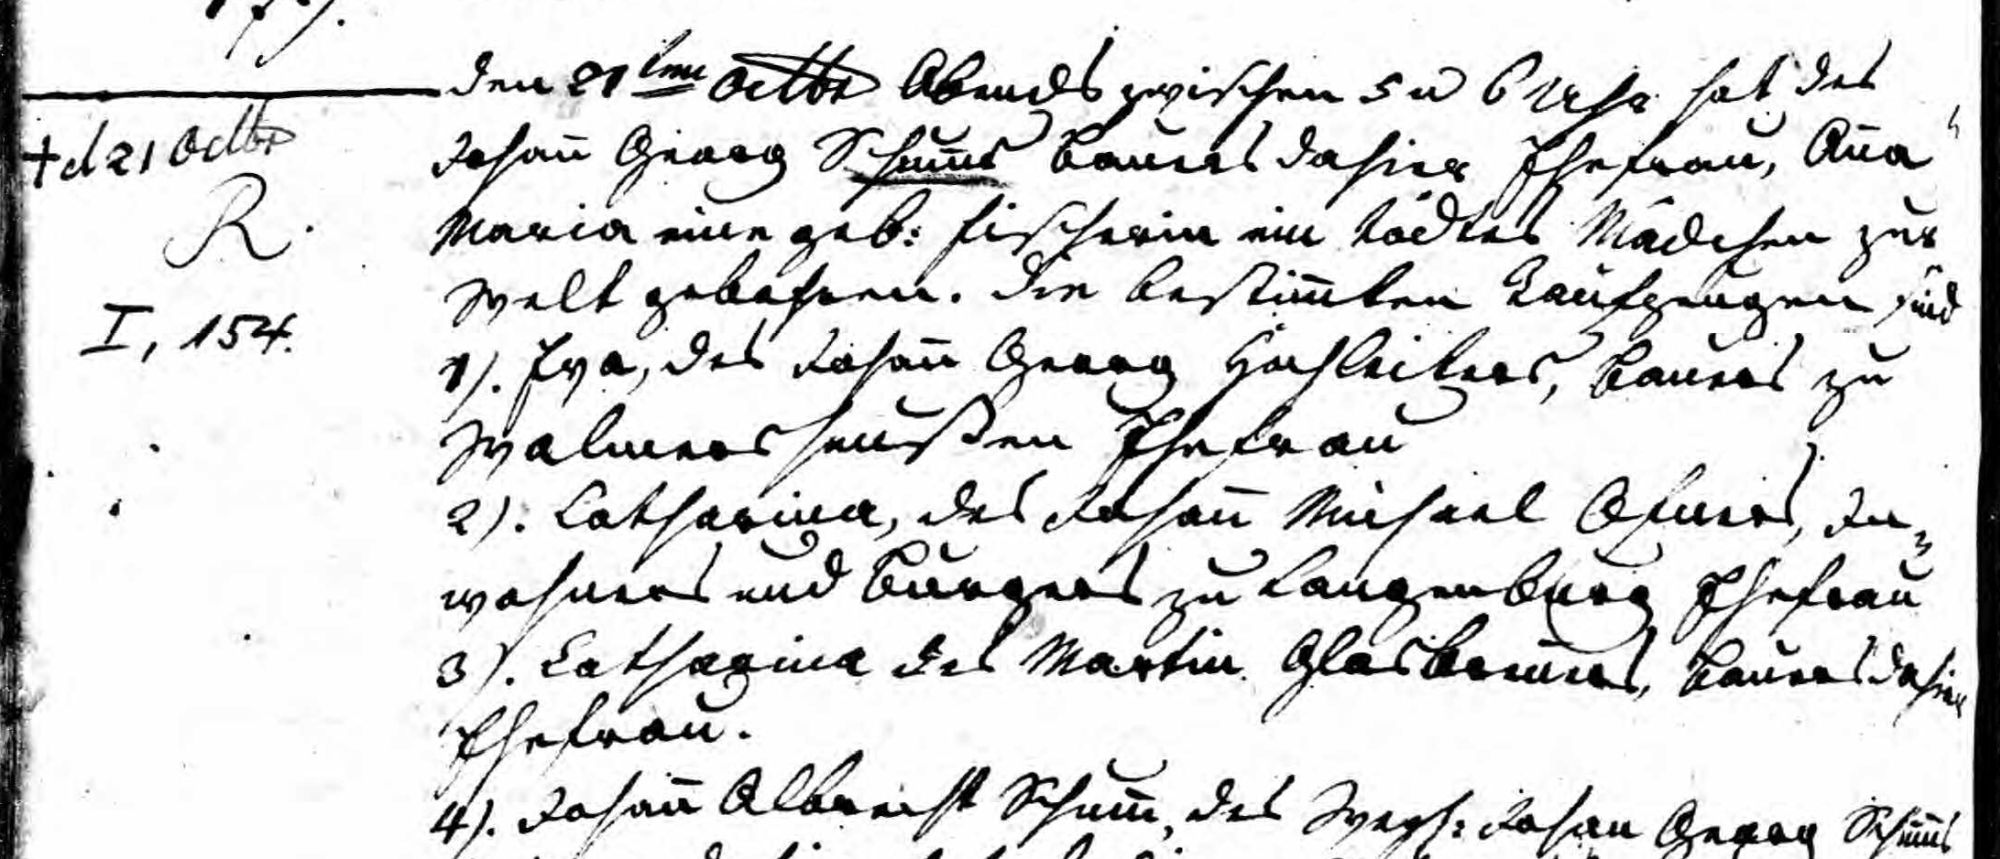 den 21ten Octbr Abends zwischen 5 u 6 Uhr hat des
Johann Georg Schumms Bauers dahier Ehefrau, Anna
† d 21 Octbr
R.
Maria eine geb: Fischerin ein todtes Mädchen zur
Welt gebohren. Die bestimmten Taufzeugen sind
I, 154.
1). Eva, des Johann Georg Hochleiters, Bauers zu
Walmershaußen Ehefrau
2). Catharina, des Johann Michael Ofners, In-
wohners und Burgers zu Langenburg Ehefrau
3). Catharina des Martin Glasbrenners, Bauers dahier
Ehefrau.
4). Johann Albrecht Schumm, des Johan Georg Schumms